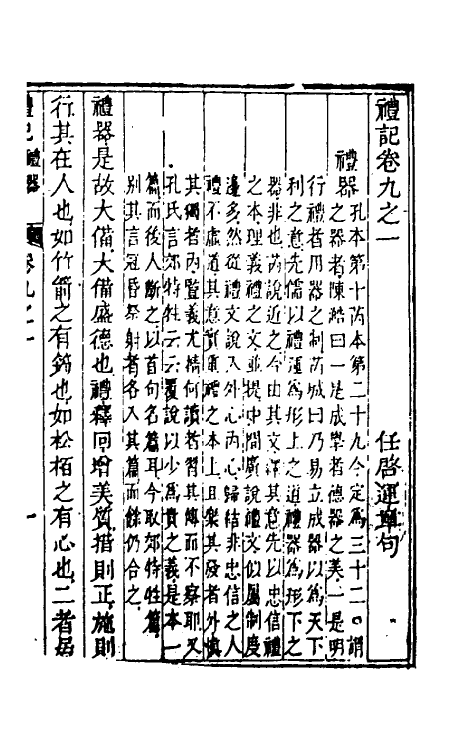 禮記卷九之一
任啓運章句
禮器孔本第十芮本第二十九今定爲三十二○謂
之器者陳澔曰一是成學者德器之美一是明
行禮者用器之制芮城曰乃易立成器以爲天下
利之意先儒以禮運爲形上之道禮器爲形下之
器非也芮說近之今由其文澤其意先以忠信禮
之本理義禮之文並提中間廣說禮文似屬制度
邊多然從禮文說入外心內心歸結非忠信之人
禮不虛道其意實重禮之本上且樂其發者外慎
其獨者內豎義尤精何讀者習其傳而不察耶又
孔氏言郊特牲云云覆說以少爲貴之義是本一
篇而後人斷之以首句名篇耳今取郊特牲篇
別其言冠昏祭射者各入其篇而餘仍合之
禮器是故大備大備盛德也禮釋回增美質措則正施則
行其在人也如竹箭之有筠也如松栢之有心也二者居
禮記 禮器 卷九之一 一